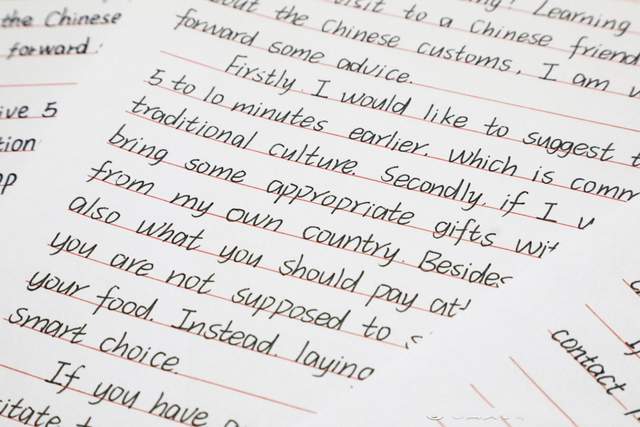 the Chinese
forward
ive 5
tion
Learning
visit to a Chinese friend
the Chinese customs, I am
forward some advice.
Firstly, I would like to suggest
5 to 10 minutes earlier. Which is
traditional culture. Secondly, if I
bring some appropriate gifts
from my own country. Besides
also what you should pay
you are not supposed to
your food. Instead, laying
smart choice.
If you have
contact